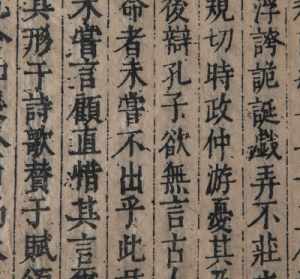 浮誇詭誕戲弄不莊
規切時政仲游憂其及
後辯孔子欲無言古
命者未嘗不出乎此
未嘗言顧直惜其言
其形于詩歌賛于賦頌